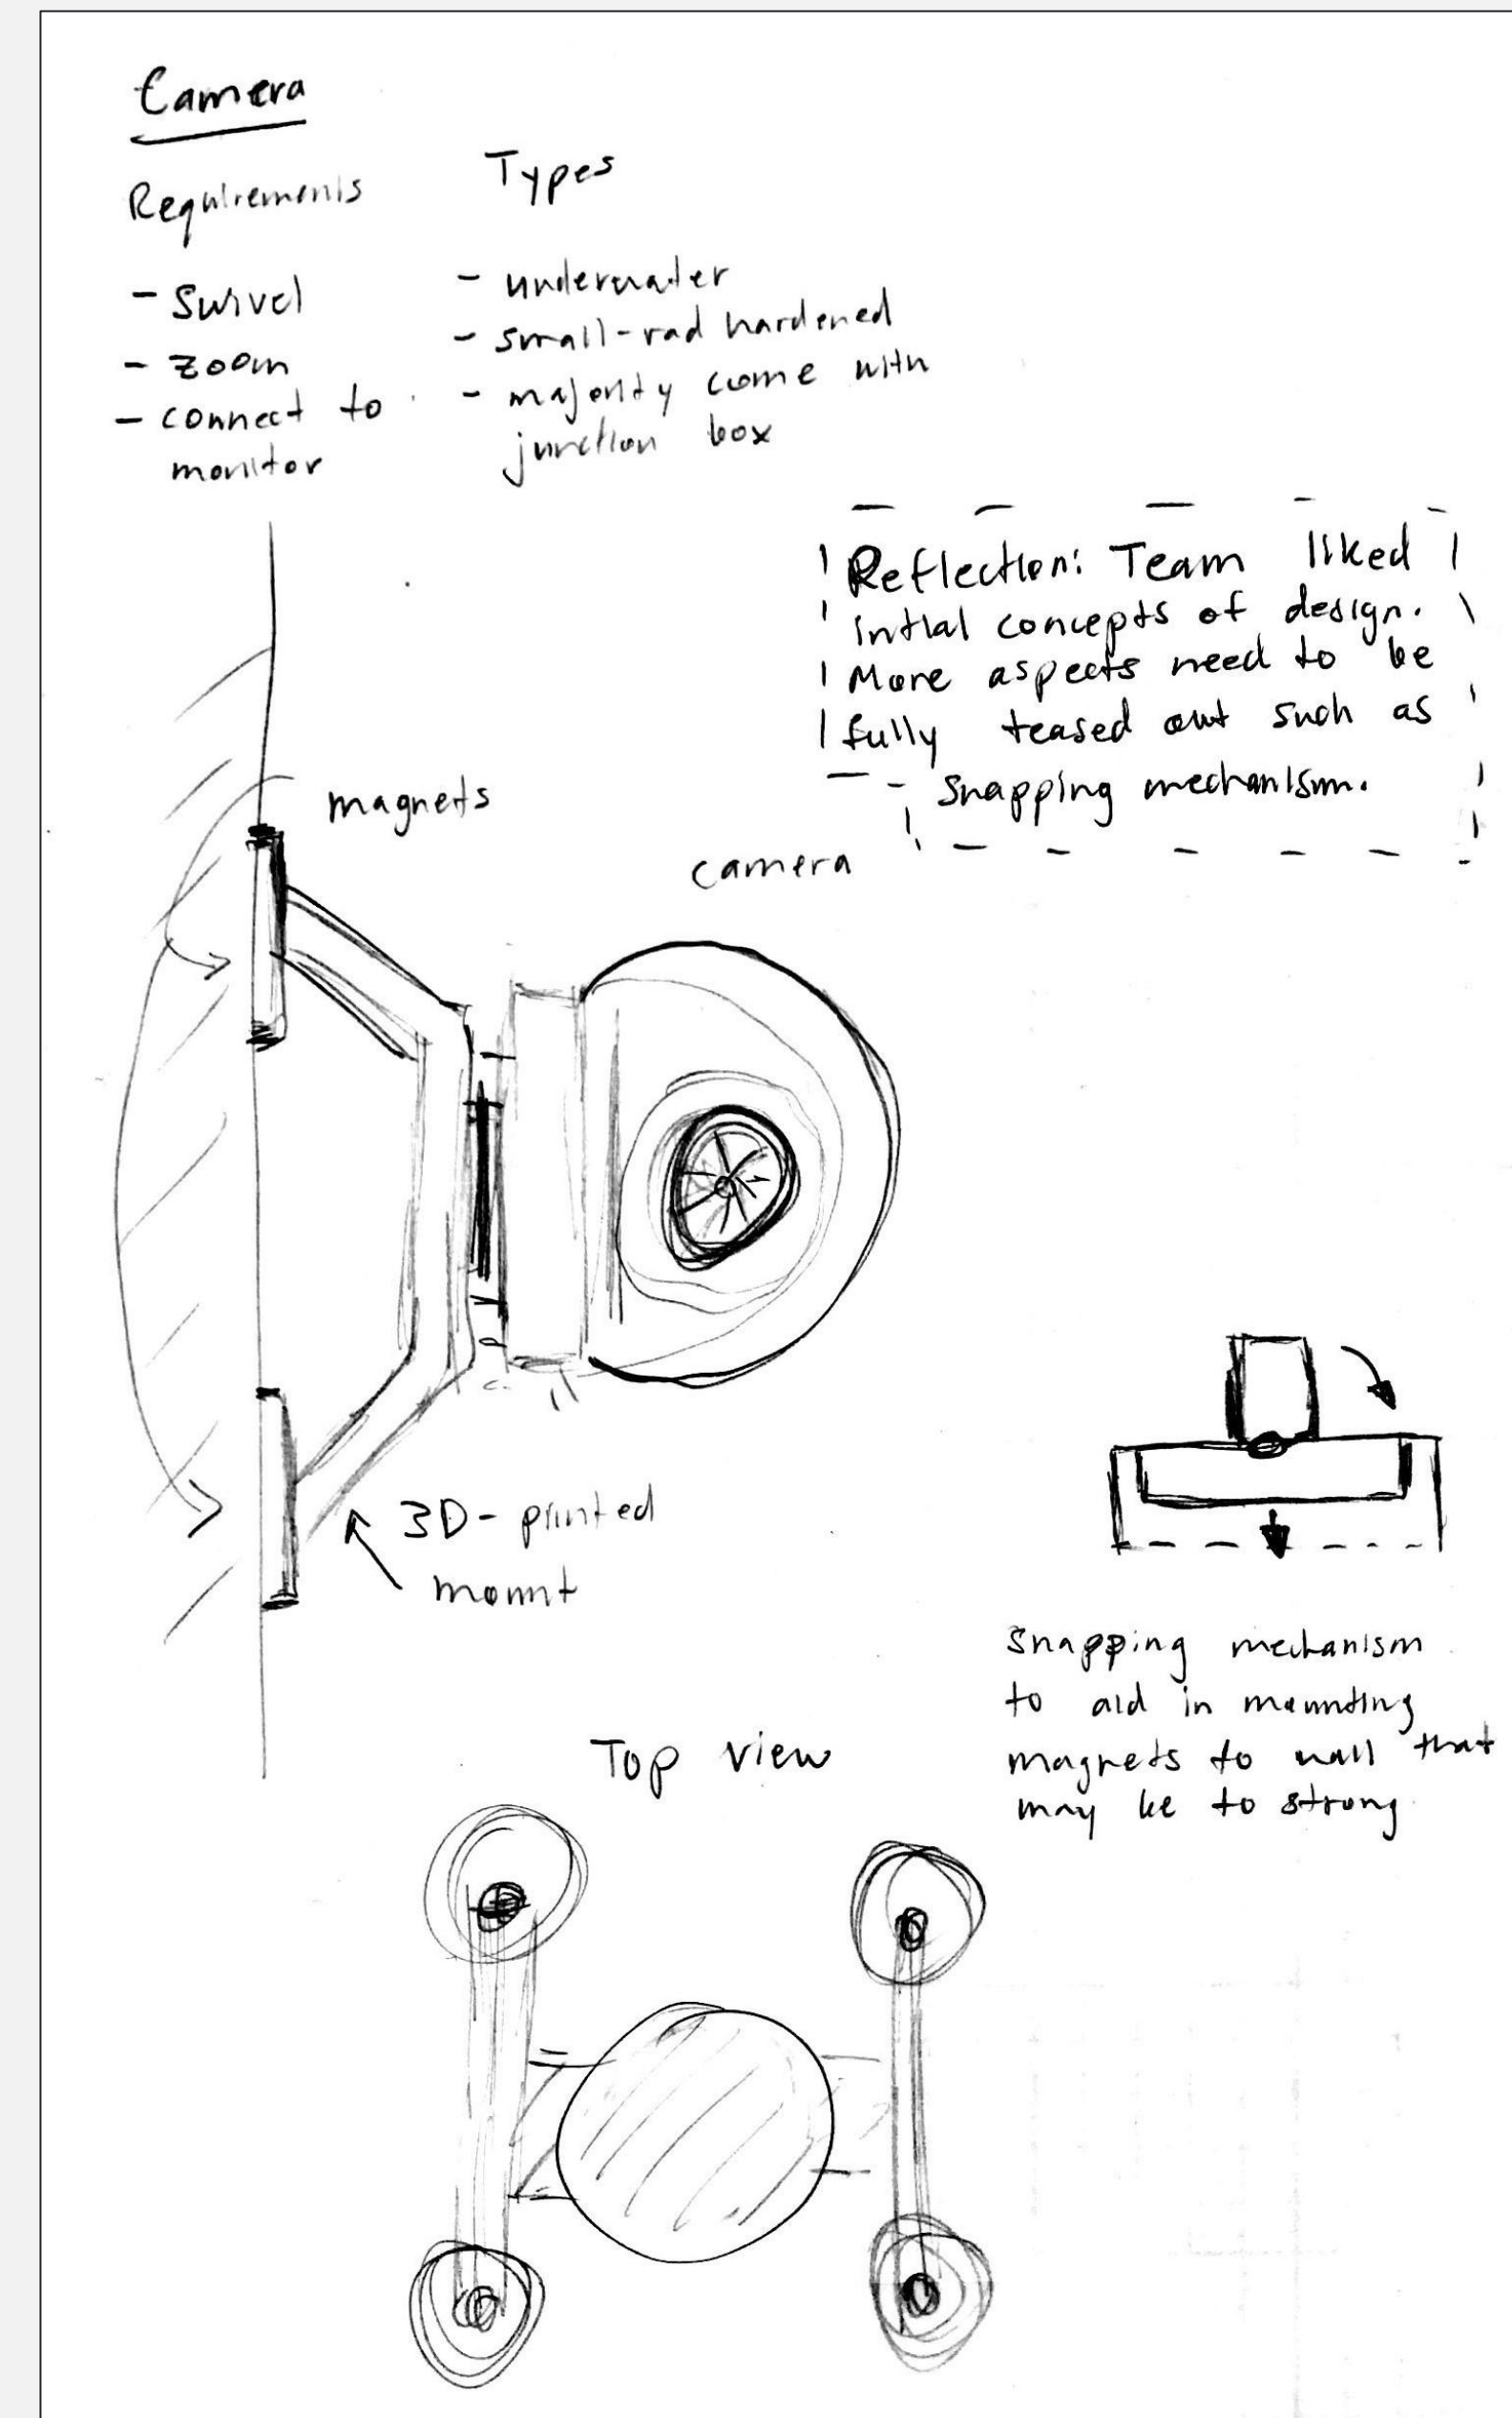 Camera
Requirements
- Swivel
- zoom
- connect to
monitor
Types
- underwater
- small-rad hardened
- majority come with
junction box
Reflection: Team liked
intial concepts of design.
More aspects need to be
fully teased out such as
- snapping mechanism.
magnets
camera
3D-printed
mount
snapping mechanism
to aid in mounting
magnets to wall that
may be to strong
Top view